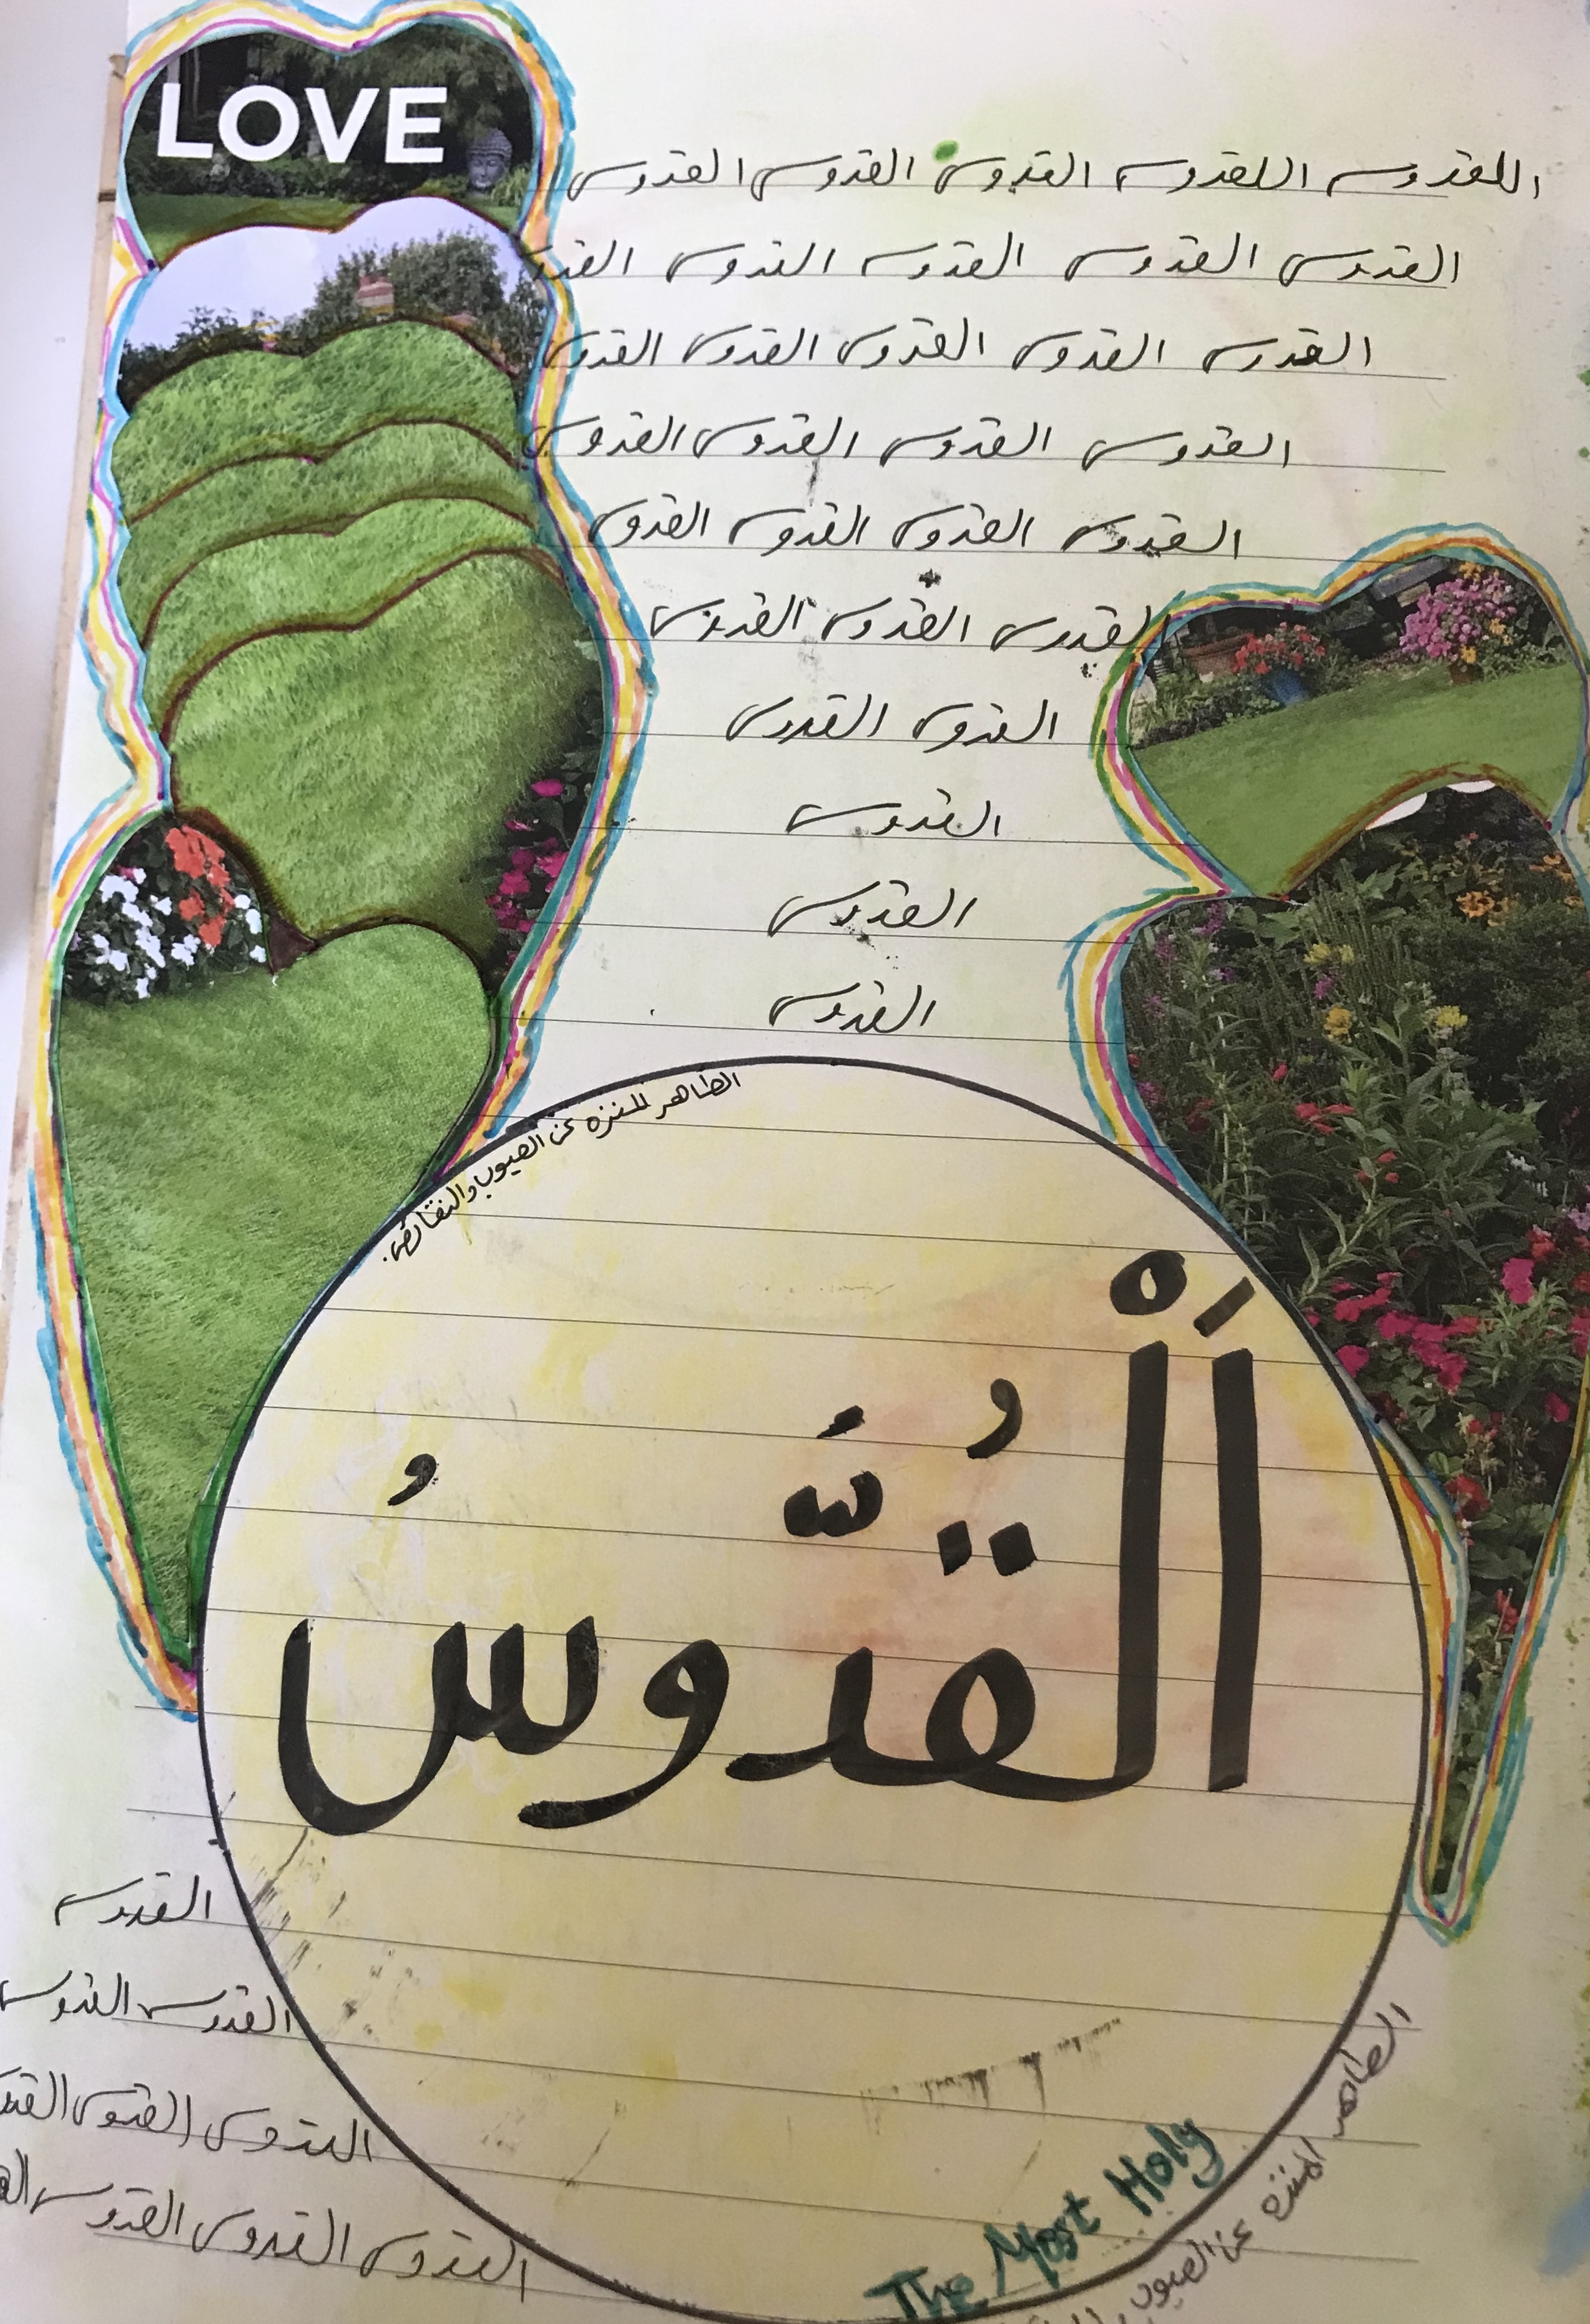 LOVE
اللقدوس اللقدوس القدوس القدوس القدوس
القدوس القدوس القدوس القدوس القدو
القدوس القدوس القدوس القدوس القدوس
القدوس القدوس القدوس القدوس
القدوس القدوس القدوس القدوس
القدوس القدوس القدوس
القدوس القدوس
القدوس
القدوس
القدوس
الطاهر المنزه عن العيوب والنقائص.
اَلْقُدُّوسُ
القدوس
القدوس القدوس
القدوس القدوس
القدوس القدوس القدوس
The Most Holy
الطاهر المنزه عن العيوب